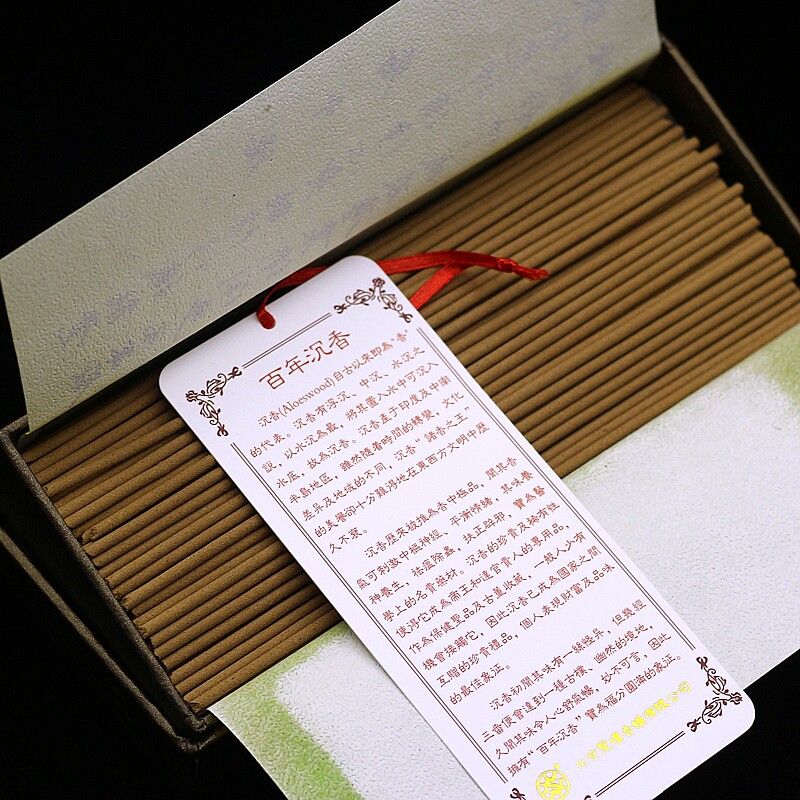 百年沉香
沉香(Aloeswood)自古以來即為“香”
的代表。沉香有浮沉、中沉、水沉之
說，以水沉為最，將其置入水中可沉入
水底，故為沉香。沉香產于印度及中南
半島地區，雖然隨著時間的轉變，文化
差异及地域的不同，沉香“諸香之王”
的美譽卻十分難得地在東西方文明中歷
久不衰。
沉香歷來被推為香中極品，聞其香
氣可刺激中樞神經、平衡情緒，具味養
神養生，祛瘟除蟲，扶正辟邪，實為醫
學上的名貴藥材。沉香的珍貴及稀有性
使得它成為帝王和達官貴人的專用品，
作為保健聖品及古董收藏，一般人少有
機會接觸它，因此沉香已成為國家之間
互贈的珍貴禮品，個人表現財富及品味
的最佳象征。
沉香初聞其味有一絲怪异，但幾經
三番便會達到一種古樸、幽然的境地，
久聞其味令人心舒氣暢，妙不可言，因此
擁有“百年沉香”實為福分圓滿的象征。
有限公司